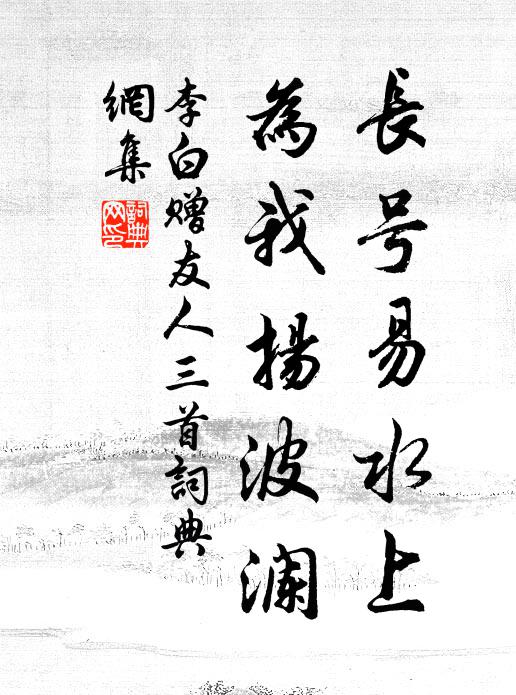 長号易水上
為我揚波澜
李白赠友人三首詞典
網集
詞典網印